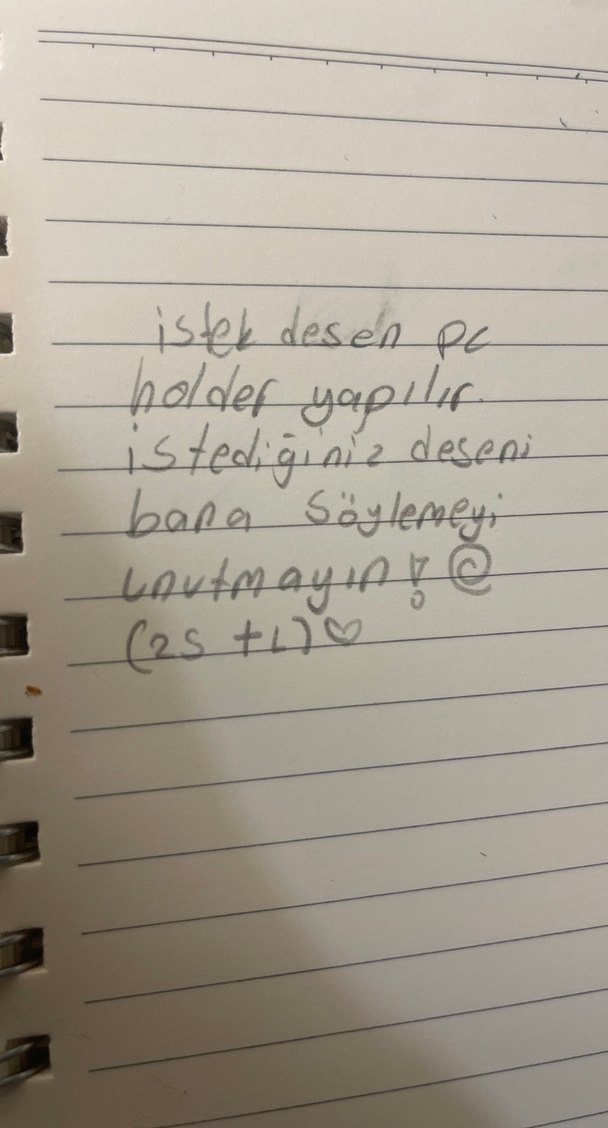 istek desen pc
holder yapılır.
istediğiniz deseni
bana söylemeyi
unutmayın! @
(25 +L)♡